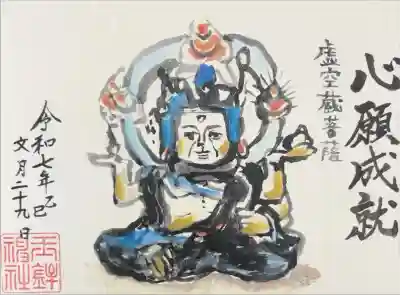 心願成就
虚空蔵菩薩
令和七年乙巳
文月二十九日